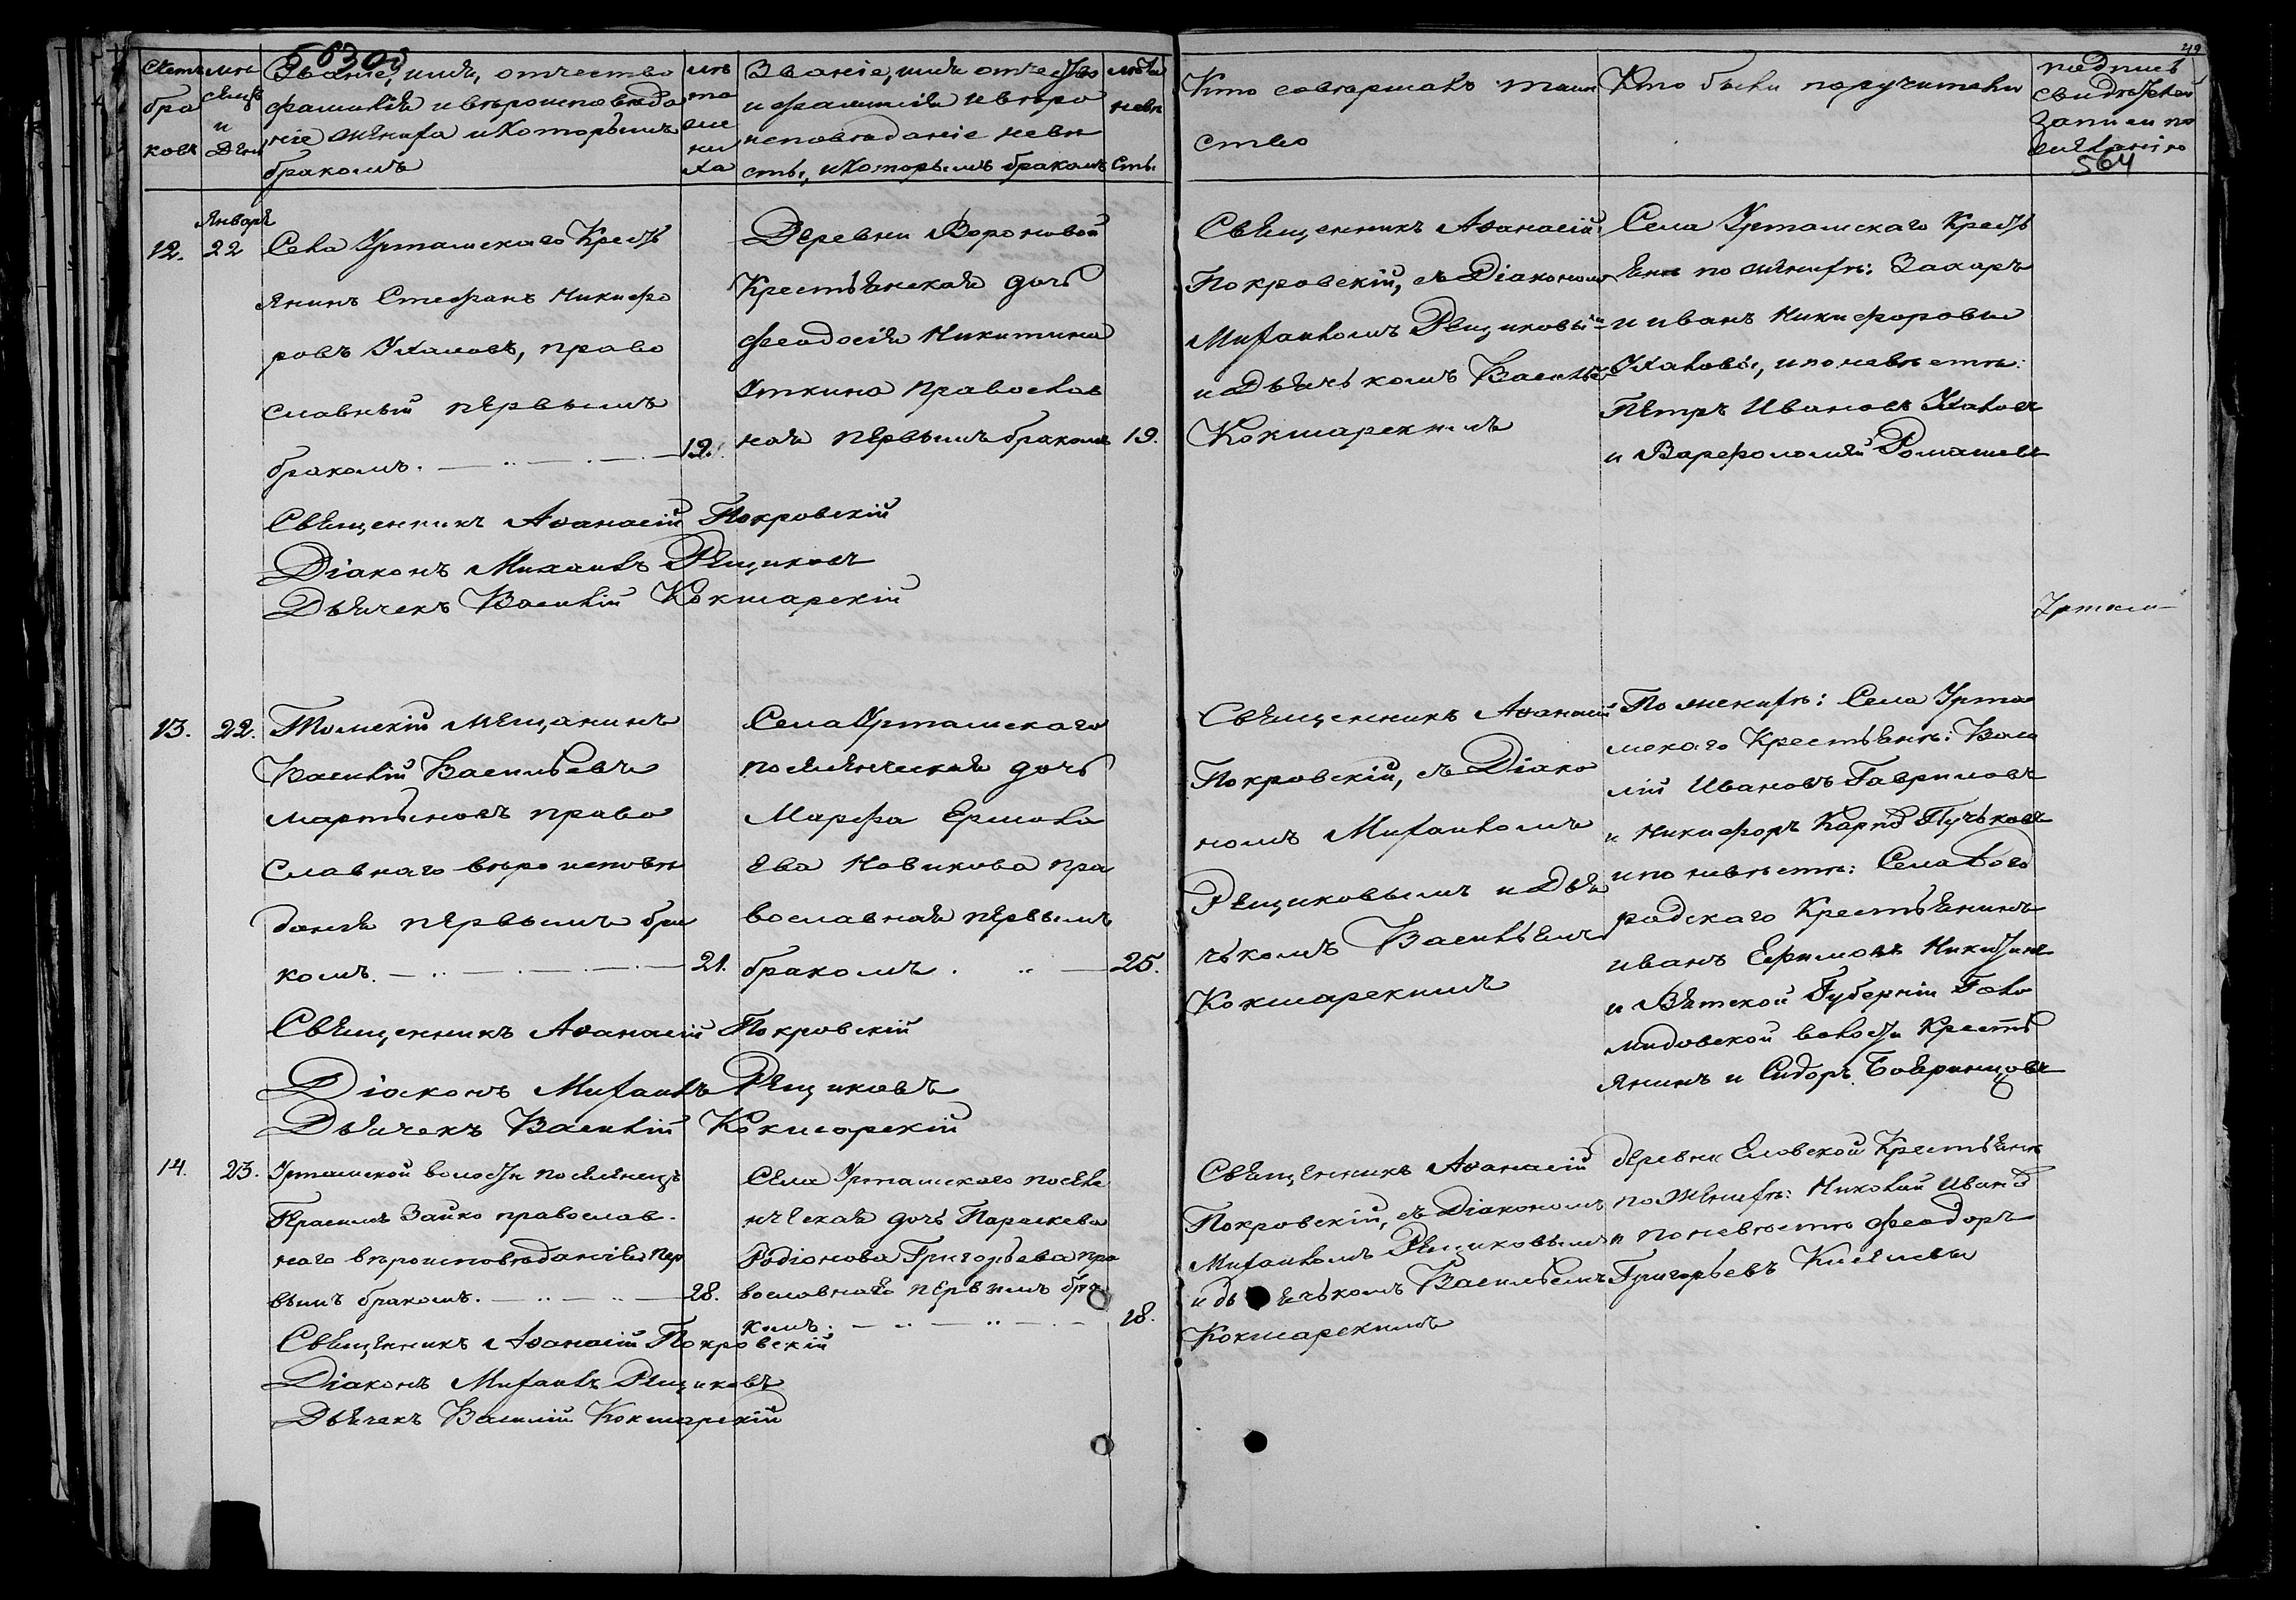 5630д
Счетъ бра ковъ
Мѣ сяцъ и День
Званіе, имя, отчество
фамилія и вѣроисповѣда
ніе жениха и которымъ
бракомъ
лѣ та же ни ха
Званіе, имя отчество
и фамилія и вѣро
исповѣданіе невѣ
сты, и которымъ бракомъ
лѣта невѣ сты
Кто совершалъ таин
ство
Кто были поручители
подпись
свидѣтелей
записи по
желанію
49
564
Январь
12.
22
Села Уртамскаго Кресть
янинъ Стефанъ Никифо
ровъ Ухаловъ, право
славный первымъ
бракомъ.
19.
Деревни Вороновой
Крестьянская дочь
Феодосія Никитина
Уткина православ
ная первымъ бракомъ
19.
Священникъ Аѳанасій
Покровскій, съ Діакономъ
Михаиломъ Рещиковы
и Дьячькомъ Василь
Кокшарскимъ
Села Уртамскаго Кресть
яне по женихѣ: Захаръ
и иванъ Никифоровы
Ухаловы, и по невѣстѣ:
Петръ Ивановъ Ухаловъ
и Варфоломей Ромашевъ
Священникъ Аѳанасій Покровскій
Діаконъ Михаилъ Рещиковъ
Дьячекъ Василій Кокшарскій
Уртам
13.
22.
Томскій Мещанинъ
Василій Васильевъ
мартыновъ право
славнаго вѣроисповѣ
данія первымъ бра
комъ.
21.
Села Уртамскаго
поселенческая дочь
Марфа Ермола
ева Новикова пра
вославная первымъ
бракомъ.
25.
Священникъ Аѳанасій
Покровскій, съ Діако
номъ Михаиломъ
Рещиковымъ и Дья
чькомъ Васильемъ
Кокшарскимъ
По женихѣ: Села Урта
мскаго Крестьяне: Васи
лій Ивановъ Гавриловъ
и Никифоръ Карпо Пучьковъ
и по невѣстѣ: Села Бого
родскаго Крестьянинъ
иванъ Ефимовъ Никитинъ
и Вятской Губерніи
волости Кресть
янинъ и Сидоръ Бояринцовъ
Священникъ Аѳанасій Покровскій
Діаконъ Михаилъ Рещиковъ
Дьячекъ Василій Кокшарскій
14.
23.
Уртамской волости поселенецъ
Герасимъ Зайко православ
наго вѣроисповѣданія пер
вымъ бракомъ.
28.
Села Уртамскаго поселе
нческая дочь Параскева
Родіонова Григорьева пра
вославная первымъ бра
комъ.
18.
Священникъ Аѳанасій
Покровскій, съ Діакономъ
Михаиломъ Рещиковымъ
и дьячькомъ Васильемъ
Кокшарскимъ
деревни Еловской Крестьяне
по женихѣ: Николай Ивано
и по невѣстѣ Феодоръ
Григорьевъ Киселевы
Священникъ Аѳанасій Покровскій
Діаконъ Михаилъ Рещиковъ
Дьячекъ Василій Кокшарскій